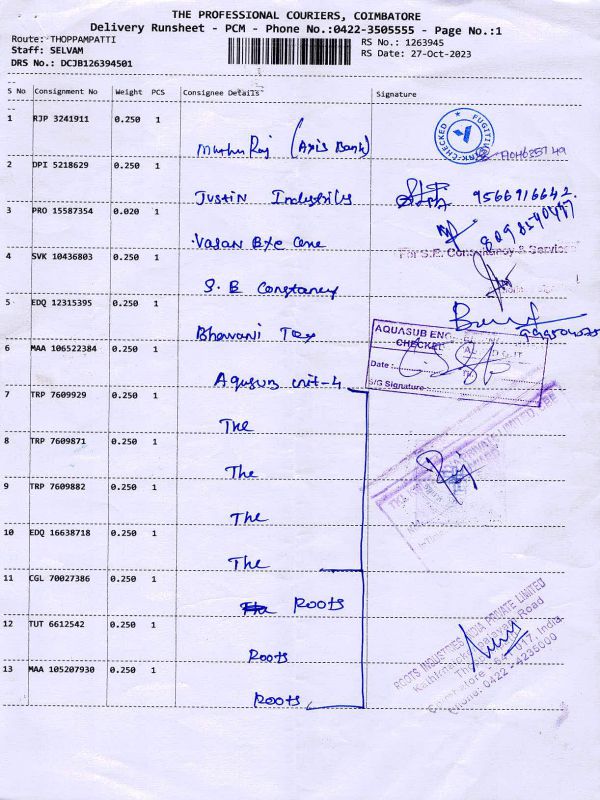 THE PROFESSIONAL COURIERS, COIMBATORE
Delivery Runsheet - PCM - Phone No.:0422-3505555 - Page No.:1
Route: THOPPAMPATTI
RS No.: 1263945
Staff: SELVAM
RS Date: 27-Oct-2023
DRS No.: DCJB126394501
S No Consignment No Weight PCS Consignee Details Signature
1 RJP 3241911 0.250 1
(Axis Bank)
CHECKED
2 DPI 5218629 0.250 1
Justin 9566916642
3 PRO 15587354 0.020 1
Vasan Eye Care
For S.E. Consultancy & Services
4 SVK 10436803 0.250 1
S. E
5 EDQ 12315395 0.250 1
Bhavani Tex
AQUASUB ENG
CHECKED
Date :
S/G Signature :
6 MAA 106522384 0.250 1
Aquasub unit-4
7 TRP 7609929 0.250 1
The
8 TRP 7609871 0.250 1
The
9 TRP 7609882 0.250 1
The
10 EDQ 16638718 0.250 1
The
11 CGL 70027386 0.250 1
ROOTS
12 TUT 6612542 0.250 1
Roots
13 MAA 105207930 0.250 1
Roots
ROOTS INDUSTRIES INDIA PRIVATE LIMITED
Road
Coimbatore - 641 017, India.
Phone: 0422 - 4235000